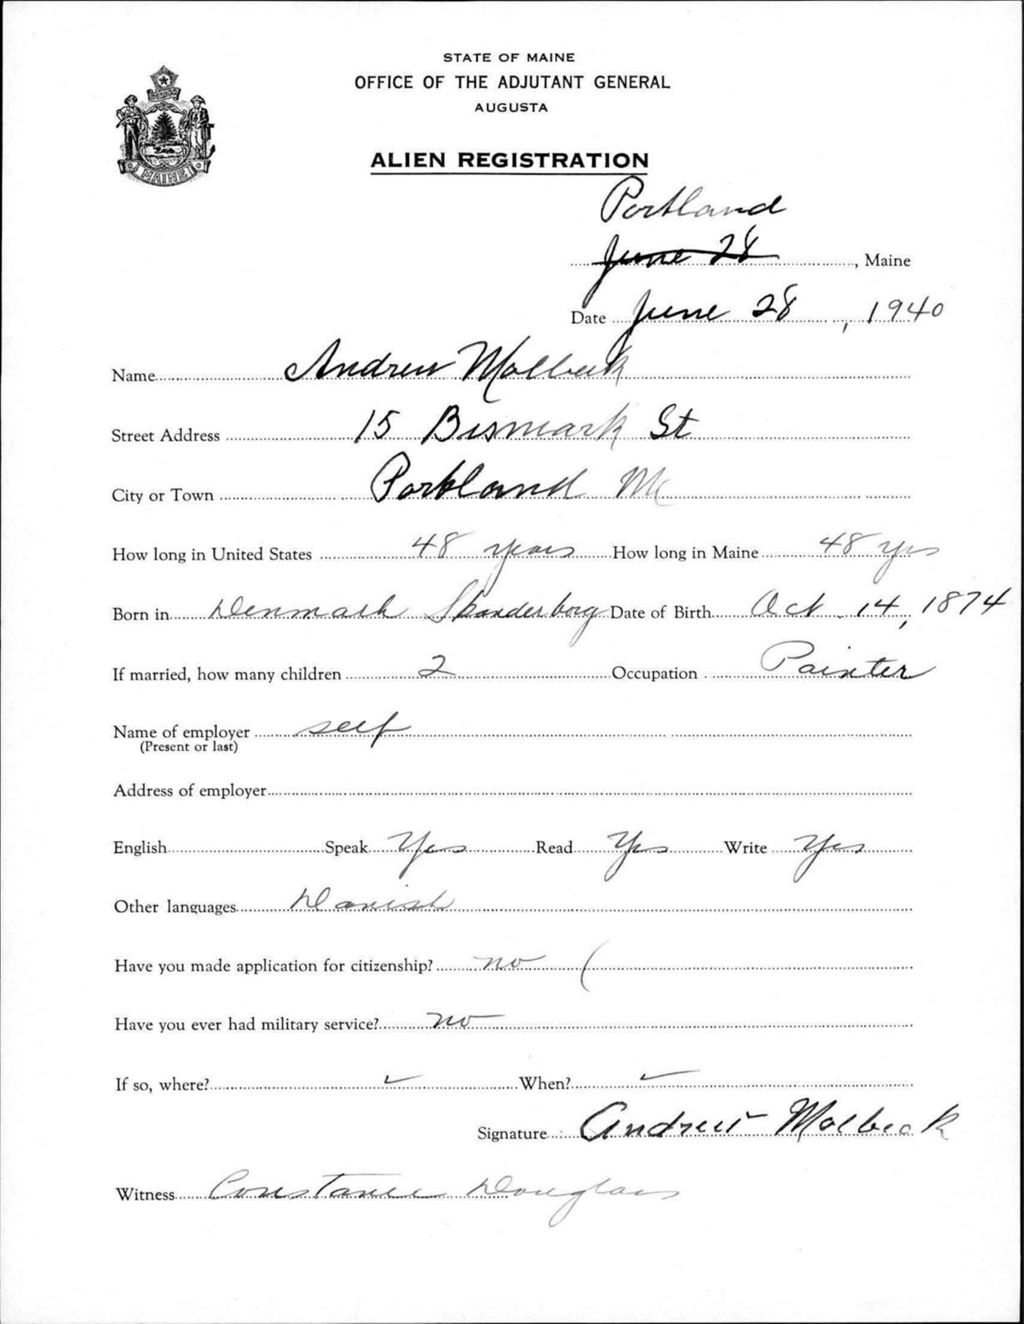 STATE OF MAINE
OFFICE OF THE ADJUTANT GENERAL
AUGUSTA
ALIEN REGISTRATION
MAINE
Portland
June 28, Maine
Date June 28, 1940
Name Andrew Molbeck
Street Address 15 Bismark St
City or Town Portland Me
How long in United States 48 years How long in Maine 48 yrs
Born in Denmark Skanderborg Date of Birth Oct. 14, 1874
If married, how many children 2 Occupation Painter
Name of employer self
(Present or last)
Address of employer
English Speak Yes Read Yes Write Yes
Other languages Danish
Have you made application for citizenship? no (
Have you ever had military service? no
If so, where? ✓ When? ✓
Signature Andrew Molbeck
Witness Constance Douglass